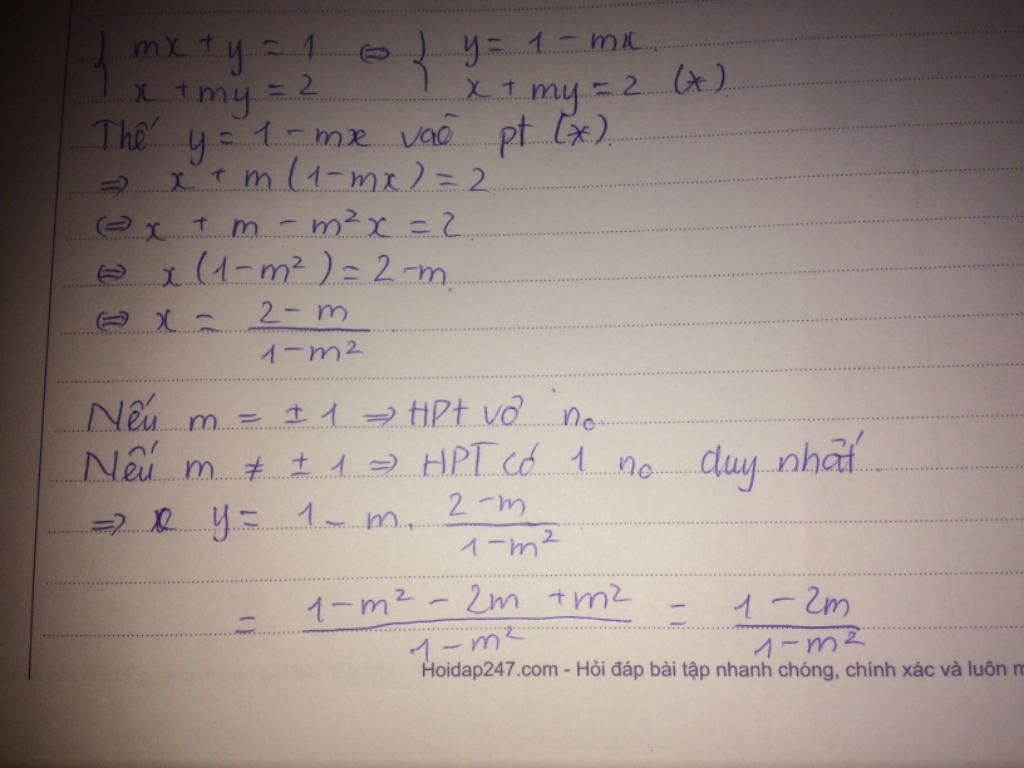 { mx + y = 1 ⇔ { y = 1 - mx.
x + my = 2 x + my = 2 (*)
Thế y = 1 - mx vào pt (*).
⇒ x + m(1-mx) = 2
⇔ x + m - m²x = 2.
⇔ x(1-m²) = 2-m.
⇔ x = (2-m)/(1-m²).
Nếu m = ±1 ⇒ HPt vô no.
Nếu m ≠ ±1 ⇒ HPT có 1 no duy nhất.
⇒ y = 1 - m. (2-m)/(1-m²)
= (1-m² - 2m + m²)/(1-m²) = (1-2m)/(1-m²)
Hoidap247.com - Hỏi đáp bài tập nhanh chóng, chính xác và luôn m